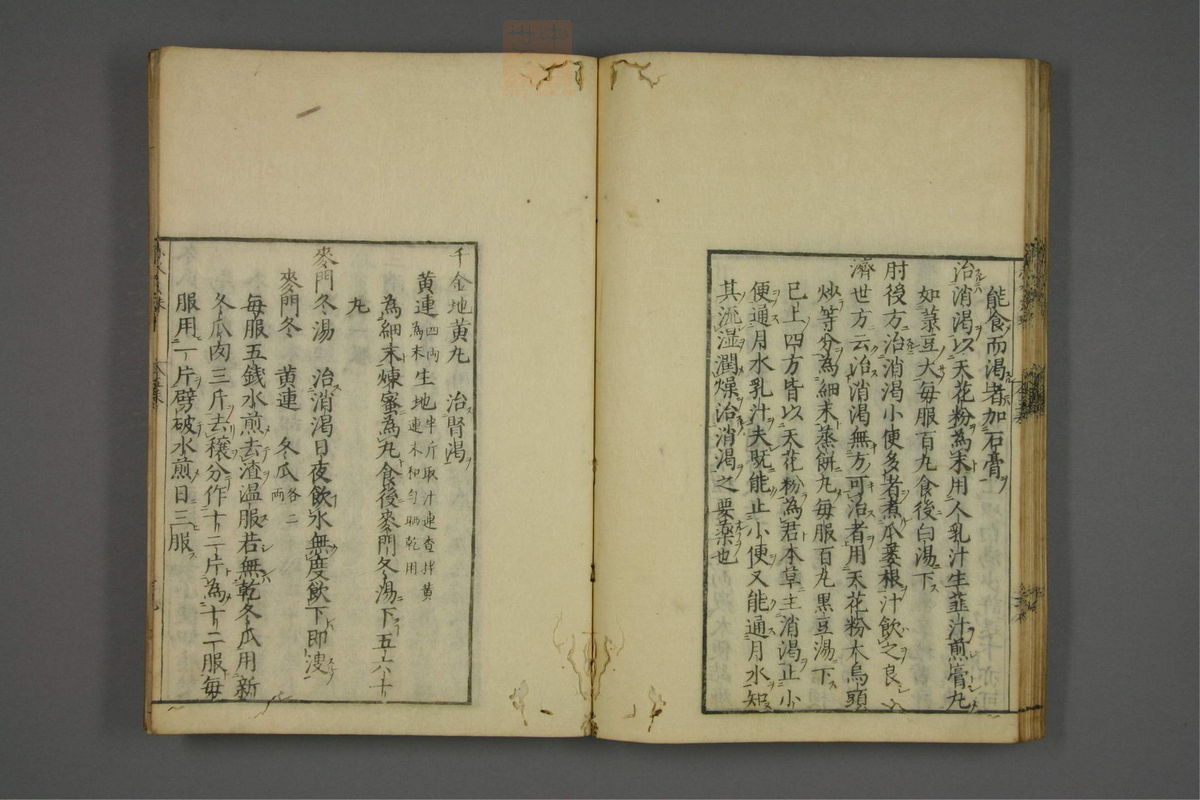 能食而渴者加石膏
治消渴以天花粉為末用人乳汁生薑汁煎膏丸
如菉豆大每服百丸食後白湯下
肘後方治消渴小便多者煮瓜蔞根汁飲之良
濟世方云治消渴無方可治者用天花粉大烏頭
炒等分為細末蒸餅丸每服百丸黑豆湯下
已上四方皆以天花粉為君本草主消渴止小
便通月水乳汁夫既能止小便又能通月水知
其流湿潤燥治消渴之要藥也
千金地黄丸 治腎渴
黄連四兩為末 生地半斤取汁連查拌黄連末和勻晒乾用
為細末煉蜜為丸食後麥門冬湯下五六十
丸
麥門冬湯 治消渴日夜飲水無度飲下即溲
麥門冬 黄連 冬瓜各二兩
每服五錢水煎去渣溫服若無乾冬瓜用新
冬瓜肉三斤去穰分作十二片為十二服每
服用一片劈破水煎日三服